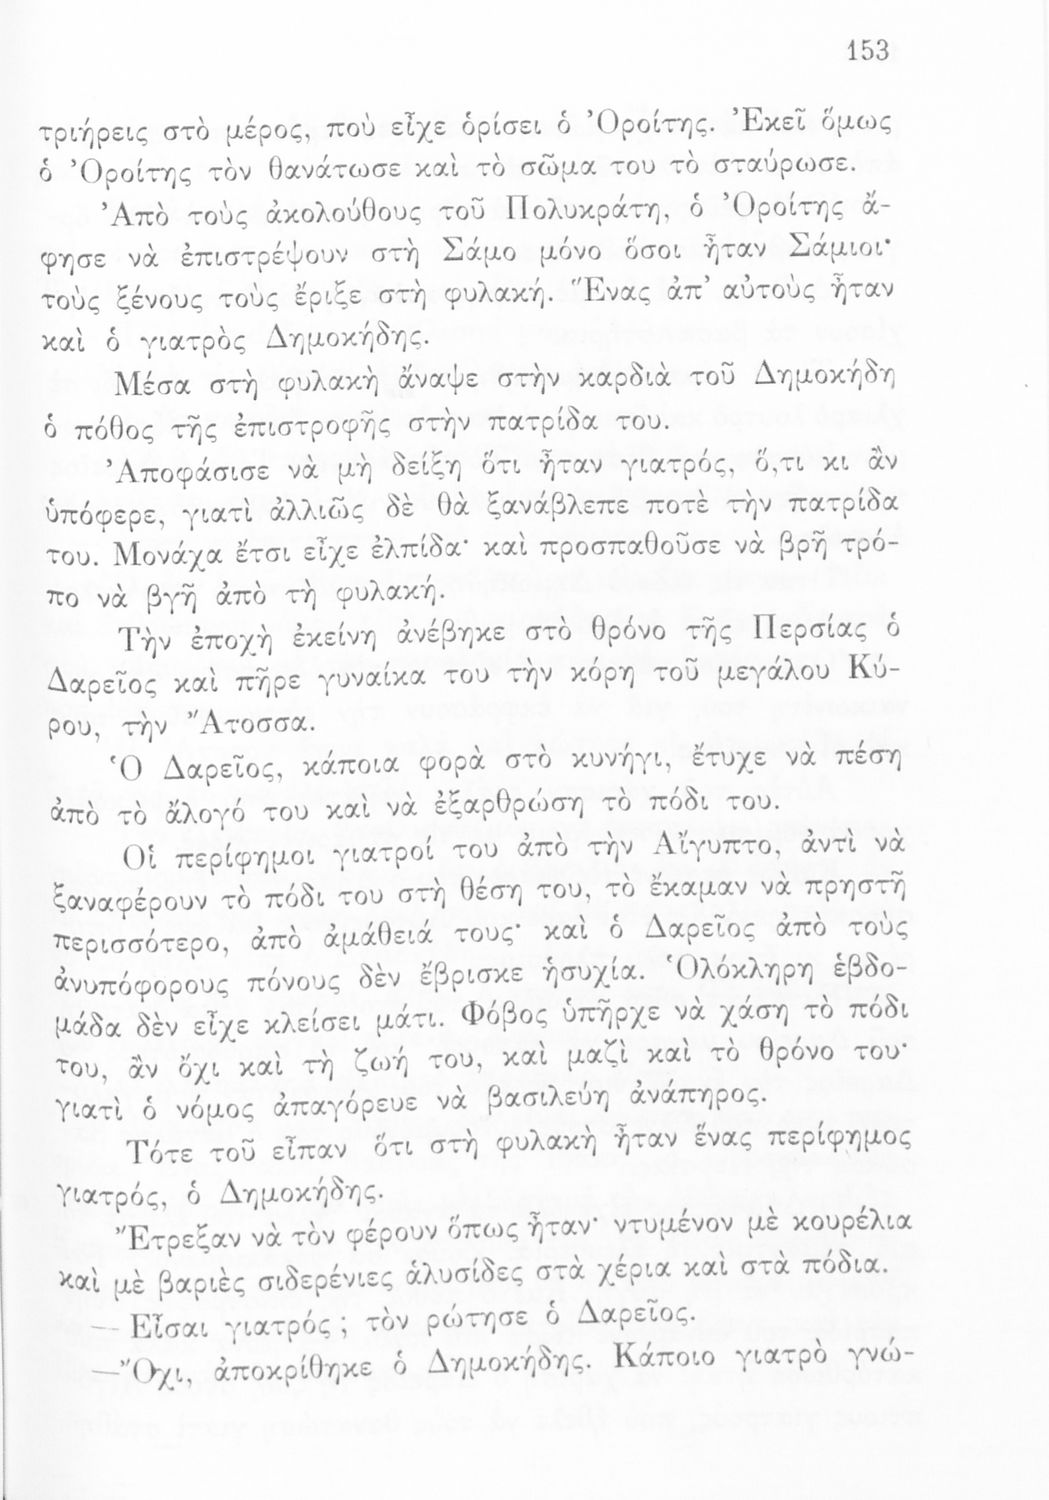 153
τριήρεις στὸ μέρος, ποὺ εἶχε ὁρίσει ὁ Ὀροίτης. Ἐκεῖ ὅμως
ὁ Ὀροίτης τὸν θανάτωσε καὶ τὸ σῶμα του τὸ σταύρωσε.
Ἀπὸ τοὺς ἀκολούθους τοῦ Πολυκράτη, ὁ Ὀροίτης ἄ-
φησε νὰ ἐπιστρέψουν στὴ Σάμο μόνο ὅσοι ἦταν Σάμιοι·
τοὺς ξένους τοὺς ἔριξε στὴ φυλακή. Ἕνας ἀπ’ αὐτοὺς ἦταν
καὶ ὁ γιατρὸς Δημοκήδης.
Μέσα στὴ φυλακὴ ἄναψε στὴν καρδιὰ τοῦ Δημοκήδη
ὁ πόθος τῆς ἐπιστροφῆς στὴν πατρίδα του.
Ἀποφάσισε νὰ μὴ δείξη ὅτι ἦταν γιατρός, ὅ,τι κι ἂν
ὑπόφερε, γιατὶ ἀλλιῶς δὲ θὰ ξανάβλεπε ποτὲ τὴν πατρίδα
του. Μονάχα ἔτσι εἶχε ἐλπίδα· καὶ προσπαθοῦσε νὰ βρῆ τρό-
πο νὰ βγῆ ἀπὸ τὴ φυλακή.
Τὴν ἐποχὴ ἐκείνη ἀνέβηκε στὸ θρόνο τῆς Περσίας ὁ
Δαρεῖος καὶ πῆρε γυναίκα του τὴν κόρη τοῦ μεγάλου Κύ-
ρου, τὴν Ἄτοσσα.
Ὁ Δαρεῖος, κάποια φορὰ στὸ κυνήγι, ἔτυχε νὰ πέση
ἀπὸ τὸ ἄλογό του καὶ νὰ ἐξαρθρώση τὸ πόδι του.
Οἱ περίφημοι γιατροί του ἀπὸ τὴν Αἴγυπτο, ἀντὶ νὰ
ξαναφέρουν τὸ πόδι του στὴ θέση του, τὸ ἔκαμαν νὰ πρηστῆ
περισσότερο, ἀπὸ ἀμάθειά τους· καὶ ὁ Δαρεῖος ἀπὸ τοὺς
ἀνυπόφορους πόνους δὲν ἔβρισκε ἡσυχία. Ὁλόκληρη ἑβδο-
μάδα δὲν εἶχε κλείσει μάτι. Φόβος ὑπῆρχε νὰ χάση τὸ πόδι
του, ἂν ὄχι καὶ τὴ ζωή του, καὶ μαζὶ καὶ τὸ θρόνο του·
γιατὶ ὁ νόμος ἀπαγόρευε νὰ βασιλεύη ἀνάπηρος.
Τότε τοῦ εἶπαν ὅτι στὴ φυλακὴ ἦταν ἕνας περίφημος
γιατρός, ὁ Δημοκήδης.
Ἔτρεξαν νὰ τὸν φέρουν ὅπως ἦταν· ντυμένον μὲ κουρέλια
καὶ μὲ βαριὲς σιδερένιες ἁλυσίδες στὰ χέρια καὶ στὰ πόδια.
— Εἶσαι γιατρός ; τὸν ρώτησε ὁ Δαρεῖος.
—Ὄχι, ἀποκρίθηκε ὁ Δημοκήδης. Κάποιο γιατρὸ γνώ-